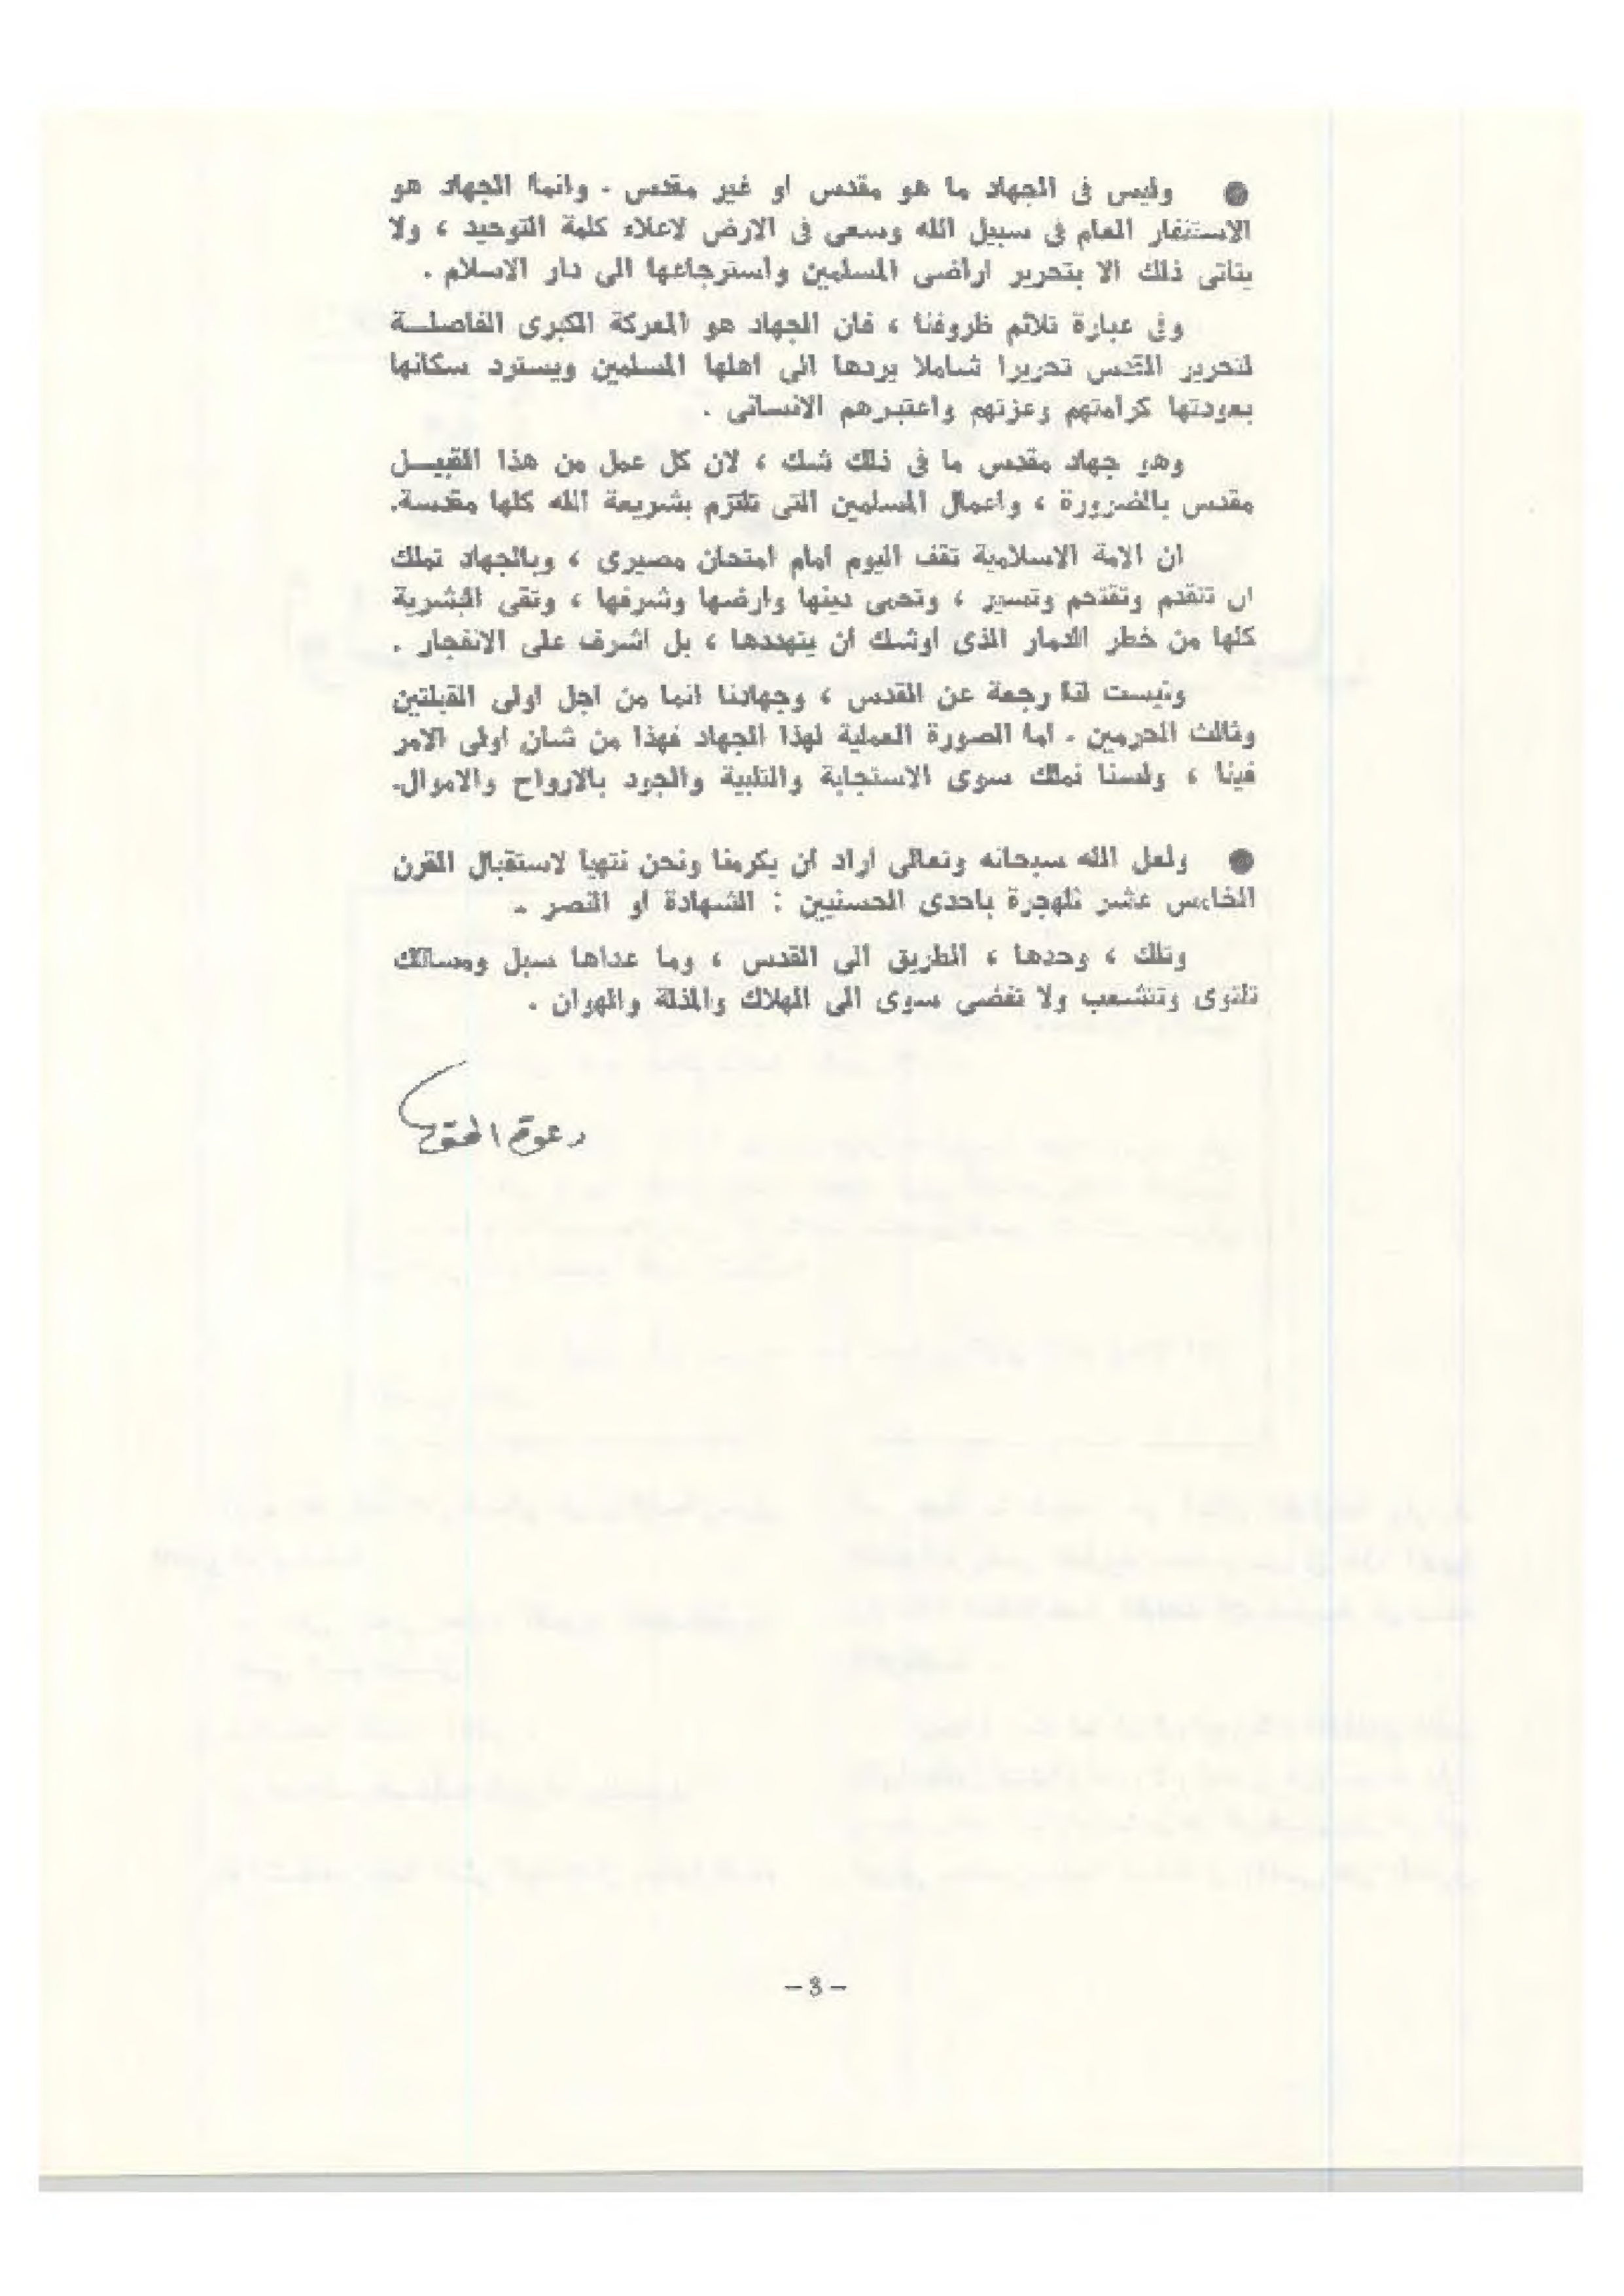 ● وليس فى الجهاد ما هو مقدس او غير مقدس . وانما الجهاد هو
الاستنفار العام فى سبيل الله وسعى فى الارض لاعلاء كلمة التوحيد ، ولا
يتاتى ذلك الا بتحرير اراضى المسلمين واسترجاعها الى دار الاسلام .
وفى عبارة تلائم ظروفنا ، فان الجهاد هو المعركة الكبرى الفاصلـة
لتحرير القدس تحريرا شاملا يردها الى اهلها المسلمين ويسترد سكانها
بعودتها كرامتهم وعزتهم واعتبرهم الانسانى .
وهو جهاد مقدس ما فى ذلك شك ، لان كل عمل من هذا القبيـل
مقدس بالضرورة ، واعمال المسلمين التى تلتزم بشريعة الله كلها مقدسة.
ان الامة الاسلامية تقف اليوم امام امتحان مصيرى ، وبالجهاد تملك
ان تتقدم وتقتحم وتسير ، وتحمى دينها وارضها وشرفها ، وتقى البشرية
كلها من خطر الدمار الذى اوشك ان يتهددها ، بل اشرف على الانفجار .
وليست لنا رجعة عن القدس ، وجهادنا انما من اجل اولى القبلتين
وثالث الحرمين . اما الصورة العملية لهذا الجهاد فهذا من شان اولى الامر
فينا ، ولسنا نملك سوى الاستجابة والتلبية والجود بالارواح والاموال.
● ولعل الله سبحانه وتعالى اراد ان يكرمنا ونحن نتهيا لاستقبال القرن
الخامس عشر للهجرة باحدى الحسنيين : الشهادة او النصر .
وتلك ، وحدها ، الطريق الى القدس ، وما عداها سبل ومسالك
تلتوى وتتشعب ولا تفضى سوى الى الهلاك والمذلة والهوان .
دعوة الحق
- 3 -